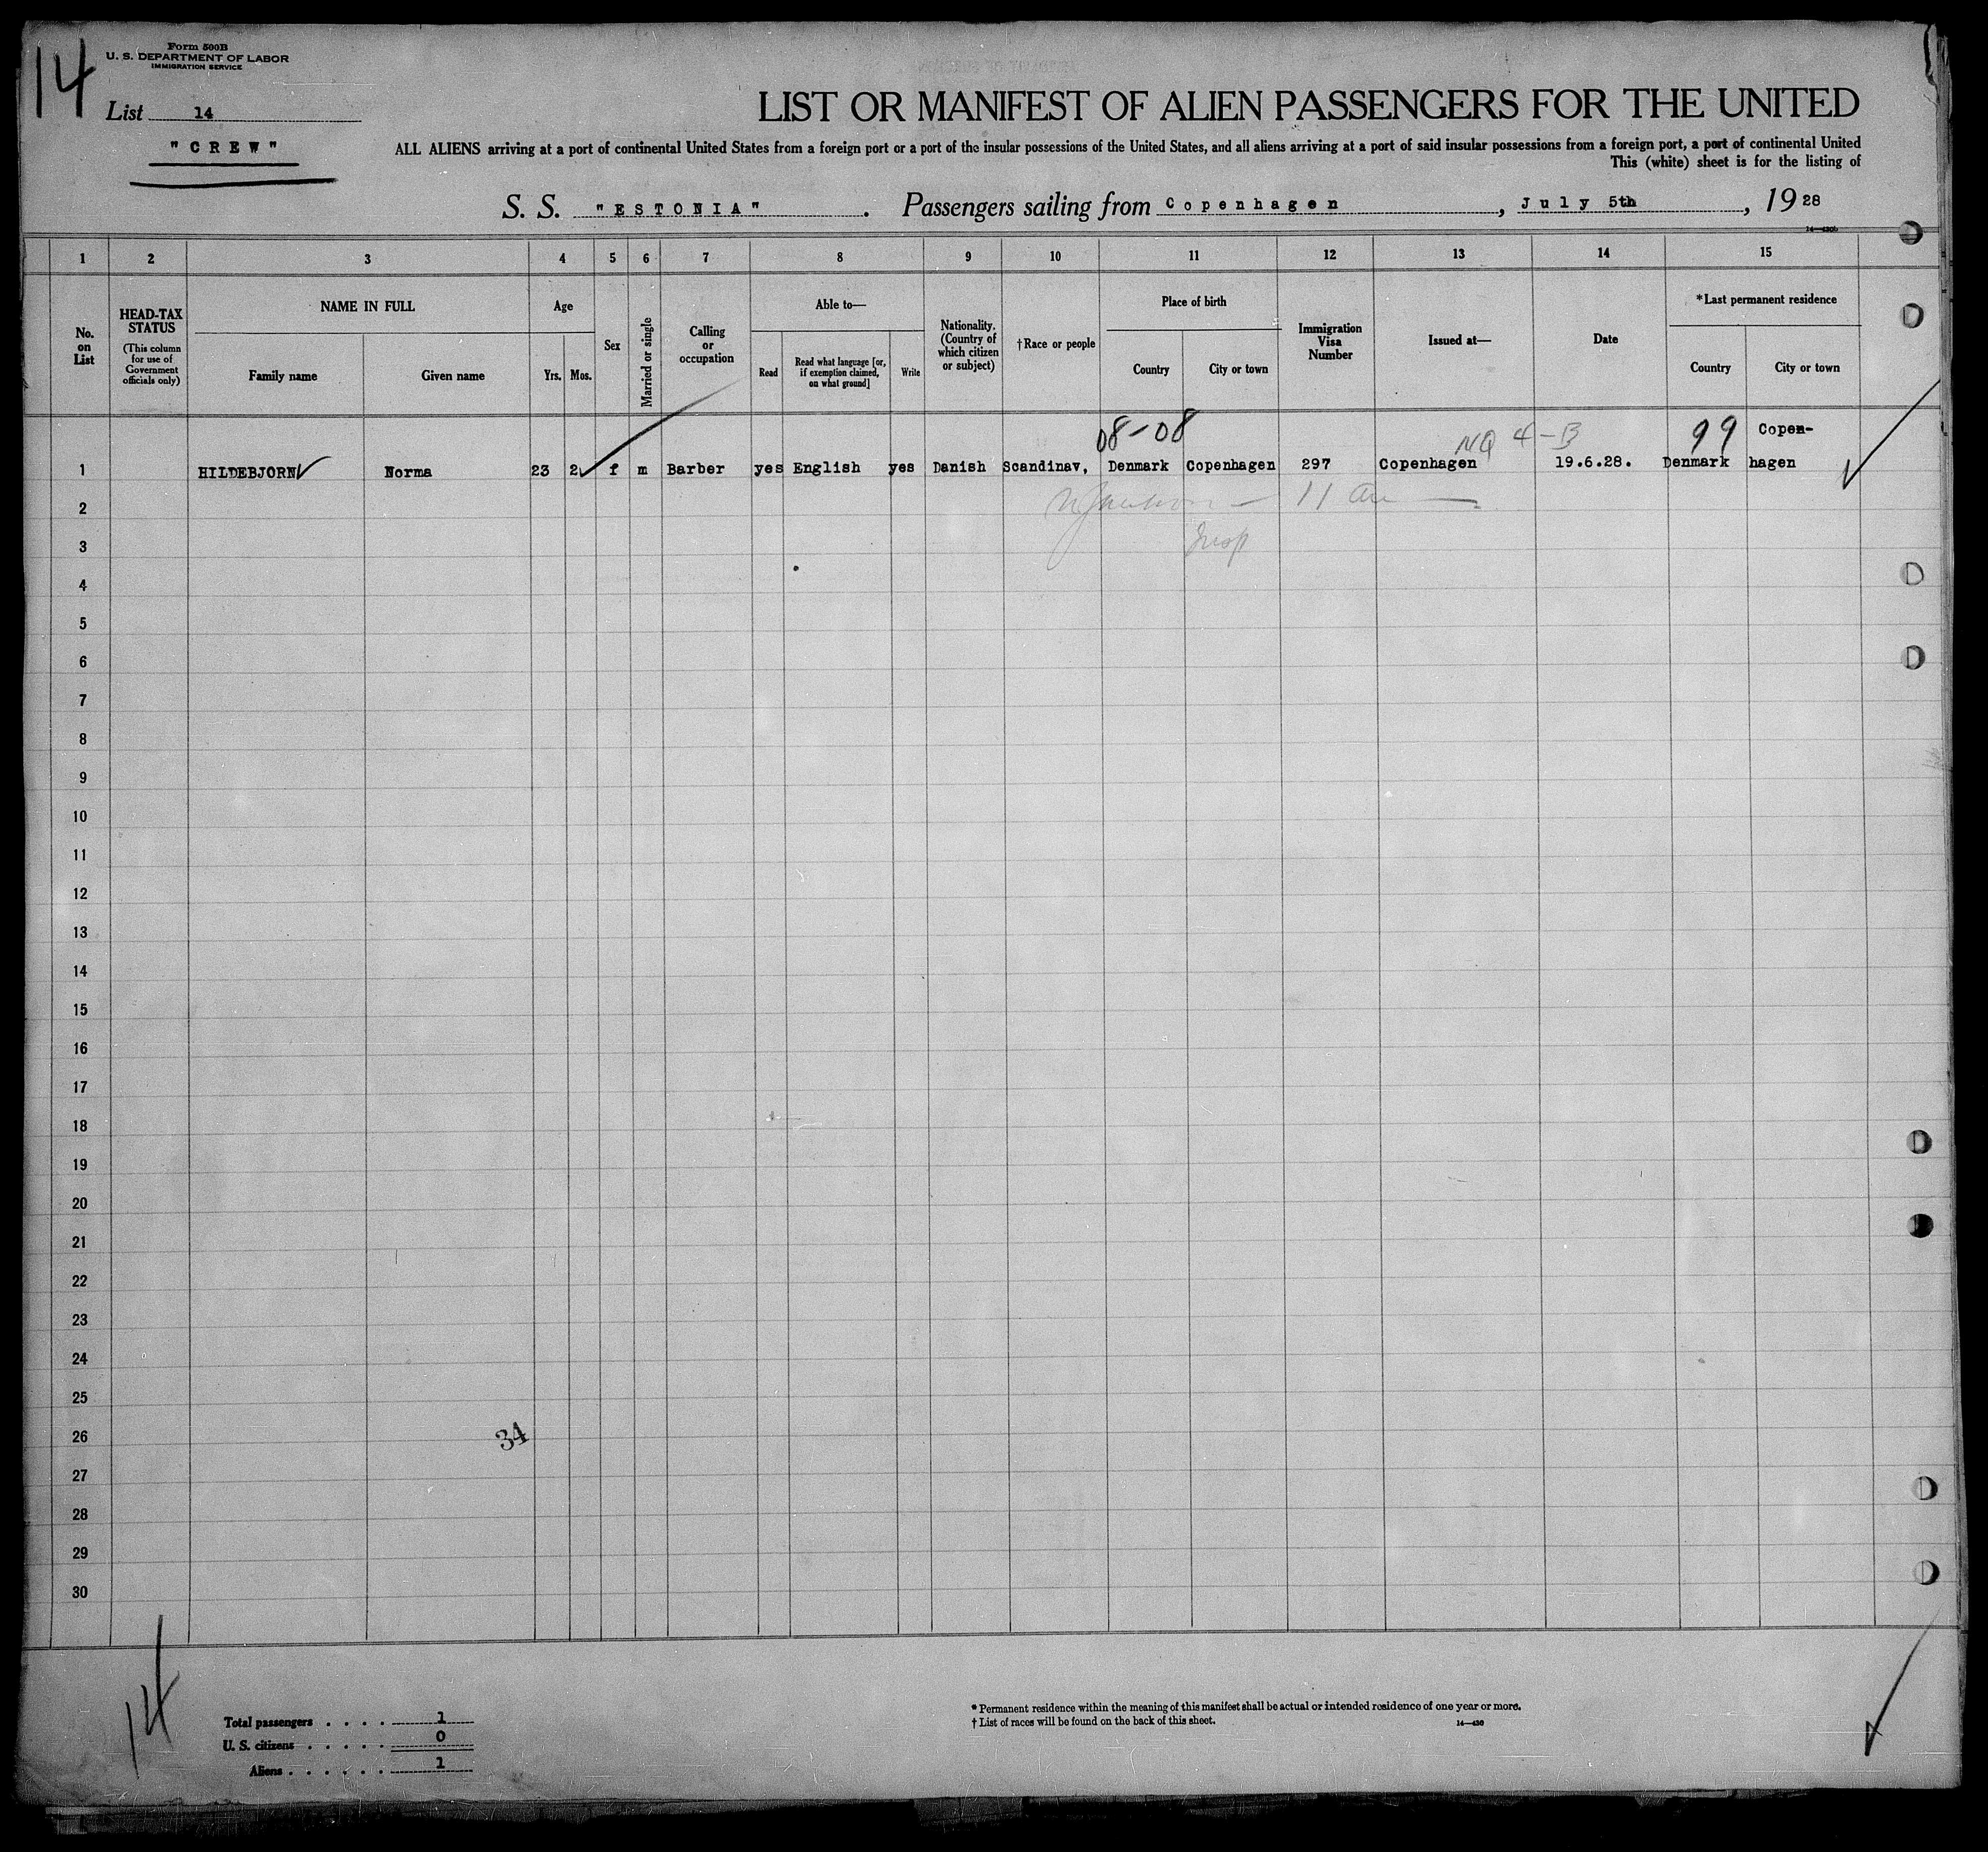 14
Form 500B
U. S. DEPARTMENT OF LABOR
IMMIGRATION SERVICE
List 14
" C R E W "
LIST OR MANIFEST OF ALIEN PASSENGERS FOR THE UNITED
ALL ALIENS arriving at a port of continental United States from a foreign port or a port of the insular possessions of the United States, and all aliens arriving at a port of said insular possessions from a foreign port, a port of continental United
This (white) sheet is for the listing of
S. S. "ESTONIA". Passengers sailing from Copenhagen, July 5th, 1928
1 2 3 4 5 6 7 8 9 10 11 12 13 14 15
No. on List
HEAD-TAX STATUS
(This column for use of Government officials only)
NAME IN FULL
Family name
Given name
Age
Yrs. Mos.
Sex
Married or single
Calling or occupation
Able to—
Read
Read what language [or, if exemption claimed, on what ground]
Write
Nationality. (Country of which citizen or subject)
†Race or people
Place of birth
Country
City or town
Immigration Visa Number
Issued at—
Date
*Last permanent residence
Country
City or town
08-08 NQ 4-B 99 Copen-
1 HILDEBJORN Norma 23 2 f m Barber yes English yes Danish Scandinav, Denmark Copenhagen 297 Copenhagen 19.6.28. Denmark hagen
2
3 Insp
4
5
6
7
8
9
10
11
12
13
14
15
16
17
18
19
20
21
22
23
24
25
26 34
27
28
29
30
14
Total passengers . . . . 1
U. S. citizens . . . . . 0
Aliens . . . . . . 1
* Permanent residence within the meaning of this manifest shall be actual or intended residence of one year or more.
† List of races will be found on the back of this sheet. 14—430